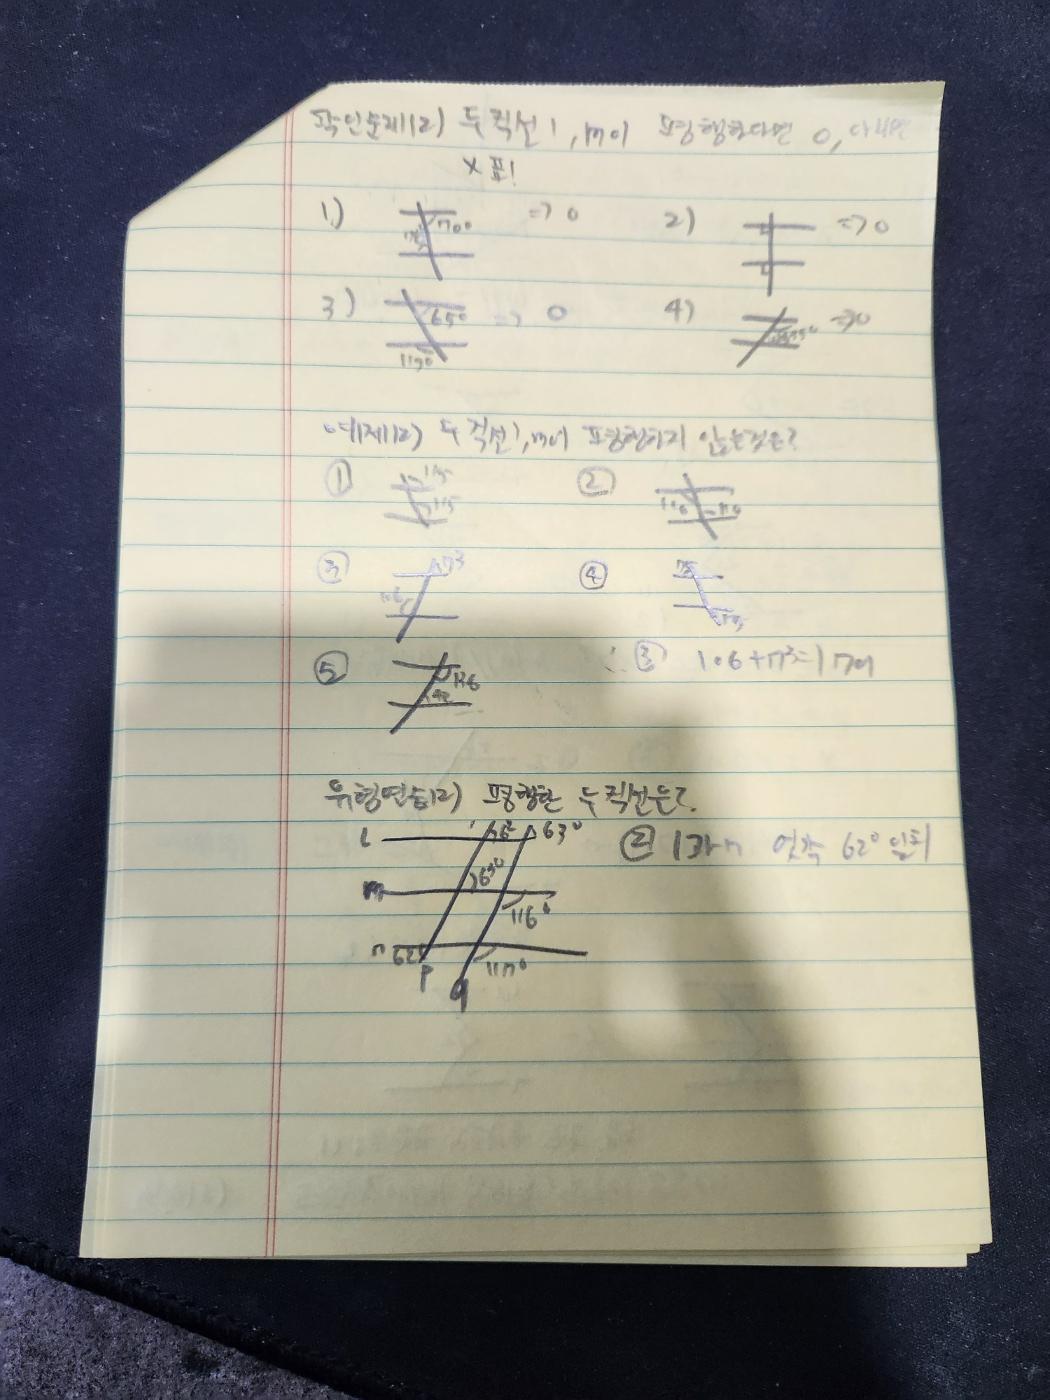 확인문제12) 두 직선 l, m이 평행하다면 o, 아니면
x표!
1) 70° => o 2) => o
3) 65° => o 4) => o
115°
예제12) 두 직선 l, m이 평행하지 않는것은?
① ②
③ 73 ④
⑤ 136 ∴ ③ 106+73=179
유형연습12) 평행한 두 직선은?
l 63° ② l과 n 엇각 62° 일치
m 65°
116°
n 62° 117°
p
q